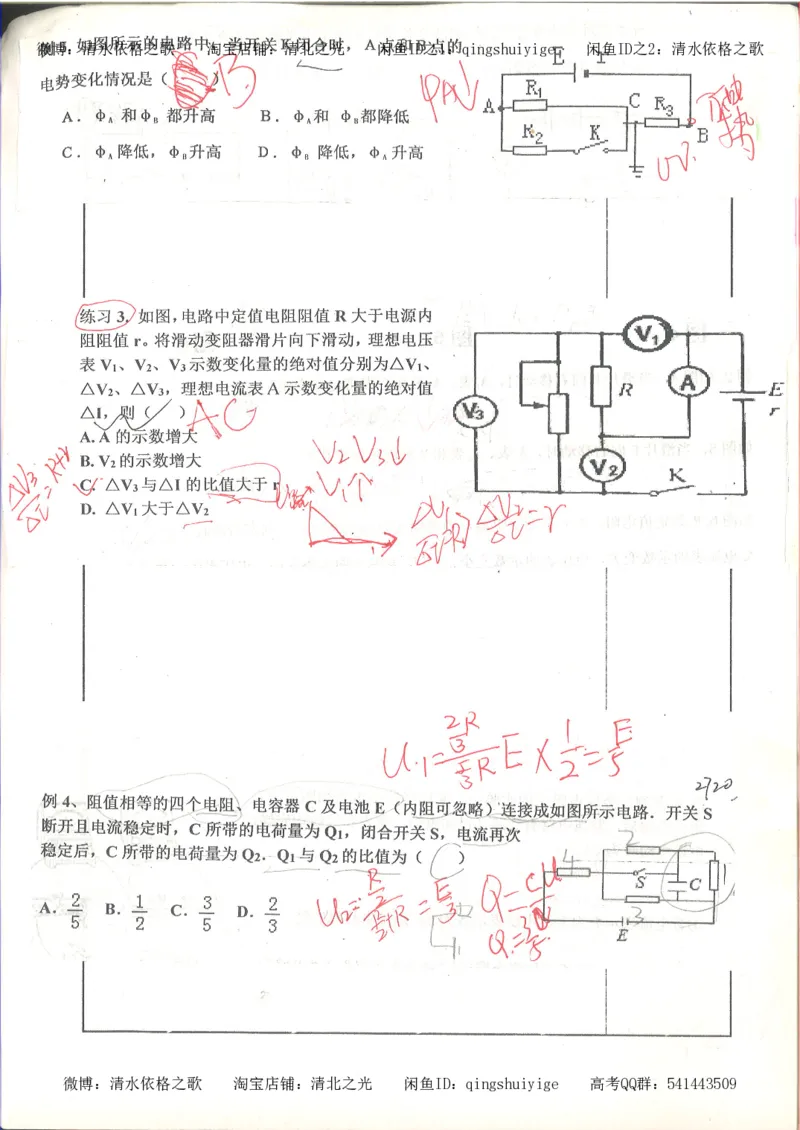 例5.如图所示的电路中，当开关K闭合时，A点和B点的
微博：清水依格之歌 淘宝店铺：清北之光 闲鱼ID之1：qingshuiyige 闲鱼ID之2：清水依格之歌
电势变化情况是（ ） B
A．φA 和φB 都升高 B．φA和 φB都降低
C．φA降低，φB升高 D．φB 降低，φA升高
φA↓
E
A R1 C R3 B
R2 K
练习 3. 如图，电路中定值电阻阻值 R 大于电源内
阻阻值 r。将滑动变阻器滑片向下滑动，理想电压
表 V1、V2、V3 示数变化量的绝对值分别为△V1、
△V2、△V3，理想电流表 A 示数变化量的绝对值
△I，则（ ） AC
A. A 的示数增大
B. V2 的示数增大
C. △V3 与△I 的比值大于 r
D. △V1 大于△V2
V2 V3↓
V1↑
V1
R A E
r
V3
V2 K
U1= E×1/2=E/5
例 4、阻值相等的四个电阻、电容器 C 及电池 E（内阻可忽略）连接成如图所示电路．开关 S
断开且电流稳定时，C 所带的电荷量为 Q1，闭合开关 S，电流再次
稳定后，C 所带的电荷量为 Q2．Q1 与 Q2 的比值为（ ）
A．2/5 B．1/2 C．3/5 D．2/3
2
4 S C 1
3
E
Q=CU
微博：清水依格之歌 淘宝店铺：清北之光 闲鱼ID：qingshuiyige 高考QQ群：541443509